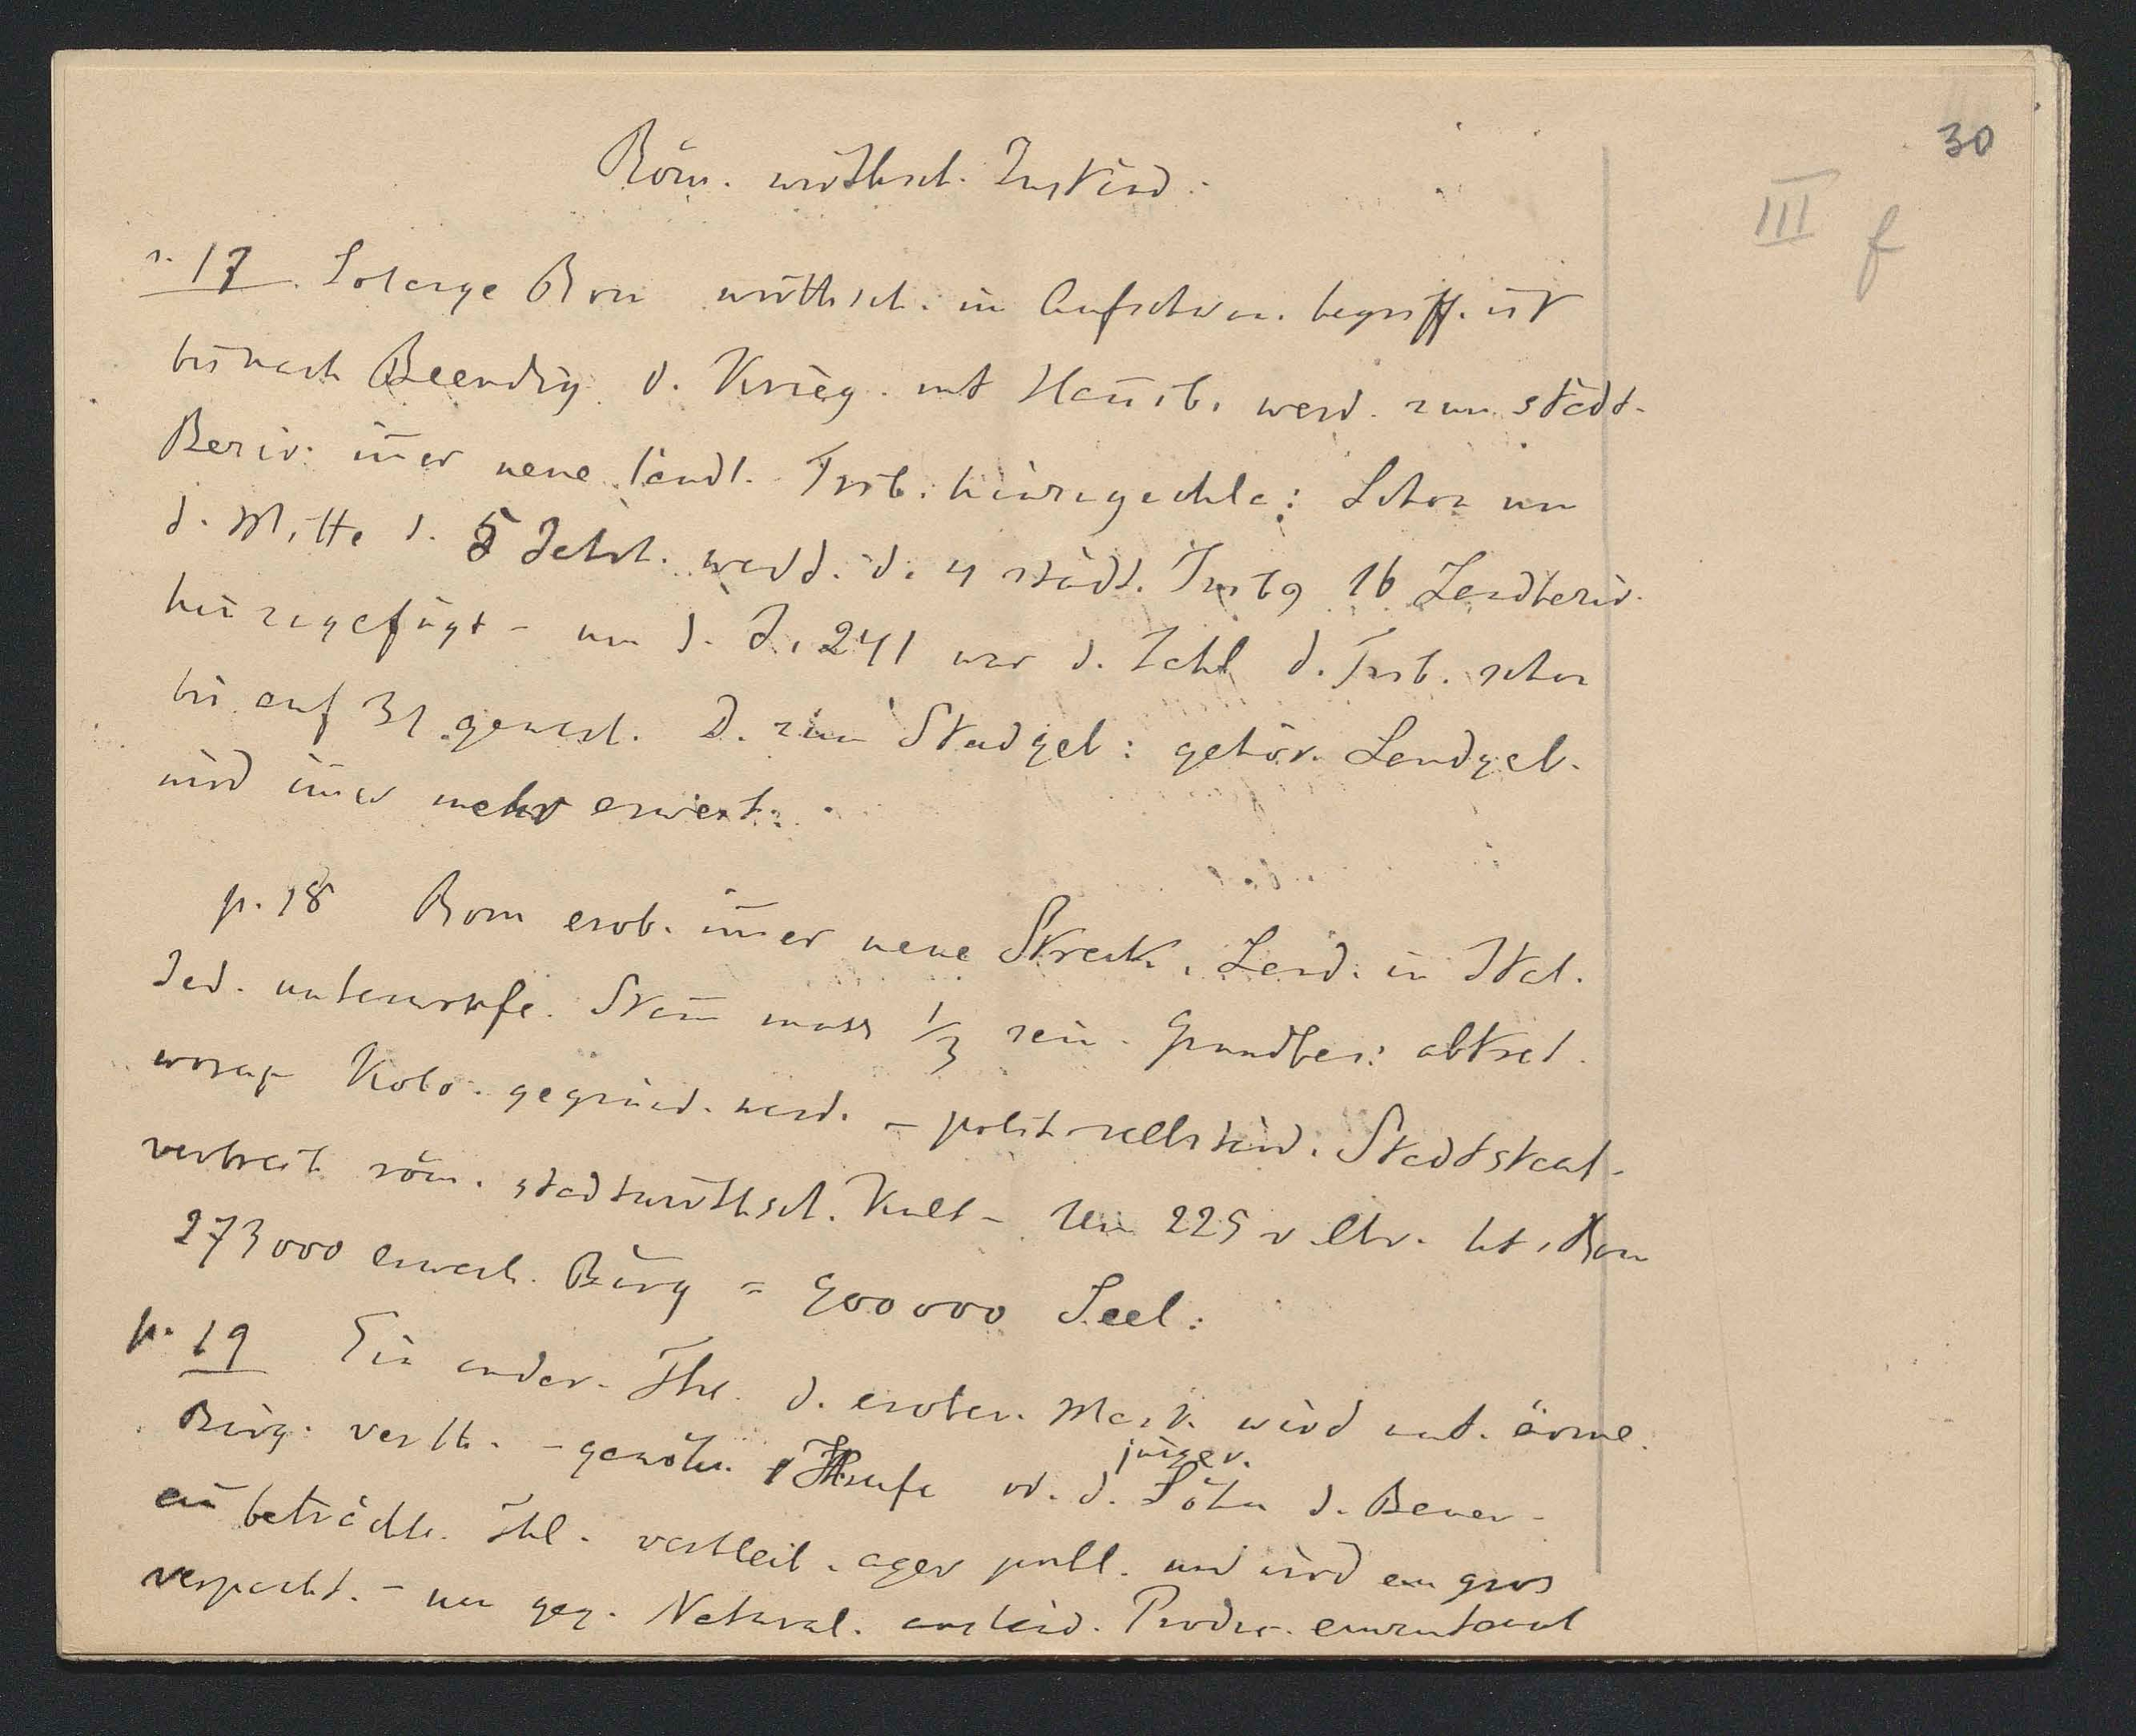 30
III f
Röm. wirthsch. Zuständ.
p. 17. Solange Rom wirthsch. im Aufschwu. begriff. ist
bis nach Beendig. d. Krieg. mit Hannib. werd. zum städt.
Bezir. im̅er neue ländl. Trib. hinzugeschla: Schon um
d. Mitte d. 5 Jahrh. werd. d. 4 städt. Trib 16 Landbezir.
hinzugefügt – um d. J. 241 war d. Zahl d. Trib. schon
bis auf 31 gewach. D. zum Stadgeb: gehör. Landgeb.
wird im̅er mehr erweit:
p. 18 Rom erob. im̅er neue Streck. Land. in Ital.
Jed. unterworfe. Stam̅ muss 1/3 sein. Grundbes: abtret.
worauf Kolo. gegründ. werd. – polit. selbständ. Stadtstaat.
verbreit. röm. stadtwirthsch. Kult – Um 225 v Chr. hat Rom
273000 erwach. Bürg = 900000 Seel:
p. 19 Ein ander. Thl. d. erober. Mark. wird unt. ärme.
Bürg. verth. – gewöhn. Hufe od. d. jünger. Söhn d. Bauer –
ein beträchtl. Thl. verbleib. ager publ. und wird en gros
verpacht. – nur geg. Natural. Produ.